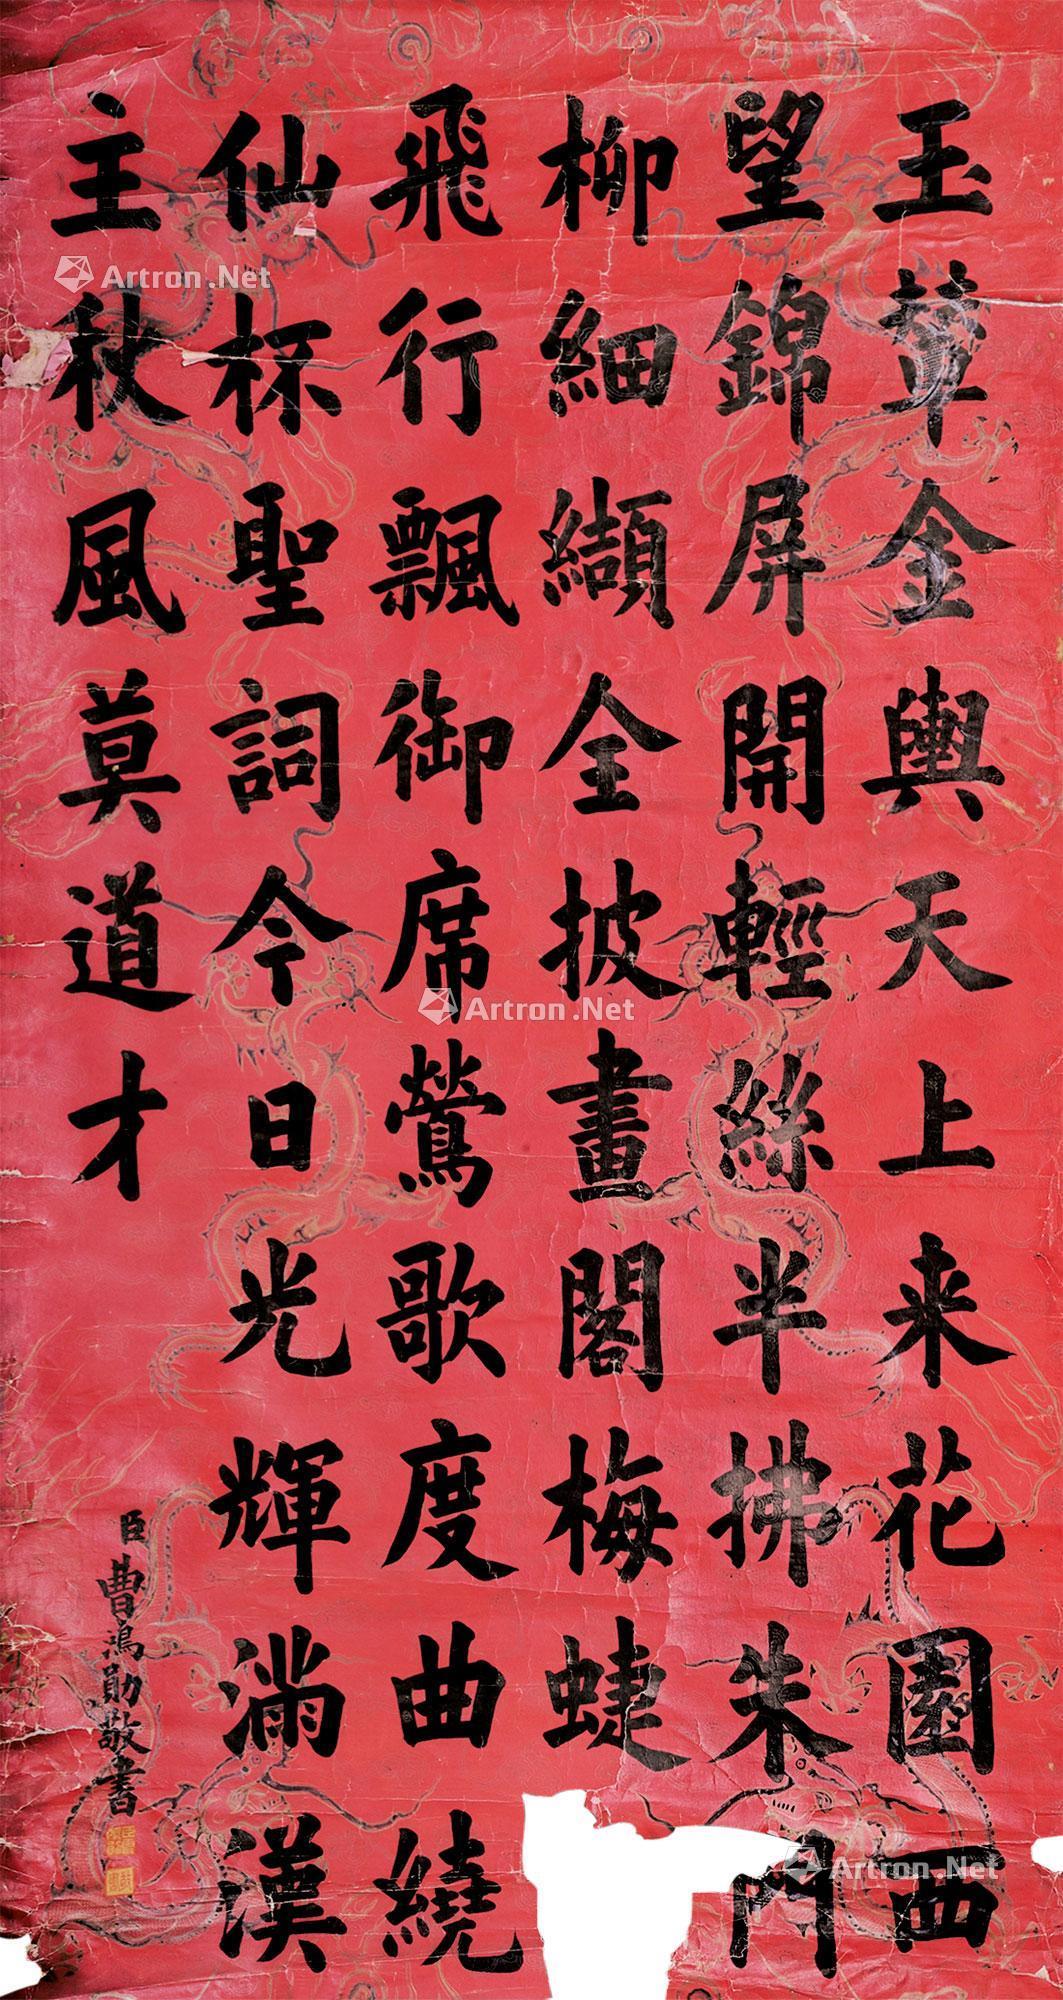 玉輦金輿天上来花園西
望錦屏開輕絲半拂朱門
柳細纈全披畫閣梅蜨
飛行飄御席鶯歌度曲繞
仙杯聖詞今日光輝滿漢
主秋風莫道才
臣曹鴻勛敬書
Artron.Net
Artron.Net
Artron.Net